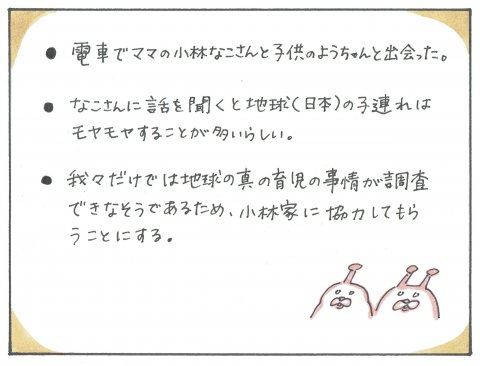 ● 電車でママの小林なこさんと子供のようちゃんと出会った。
● なこさんに話を聞くと地球(日本)の子連れは
モヤモヤすることが多いらしい。
● 我々だけでは地球の真の育児の事情が調査
できなそうであるため、小林家に協力してもら
うことにする。